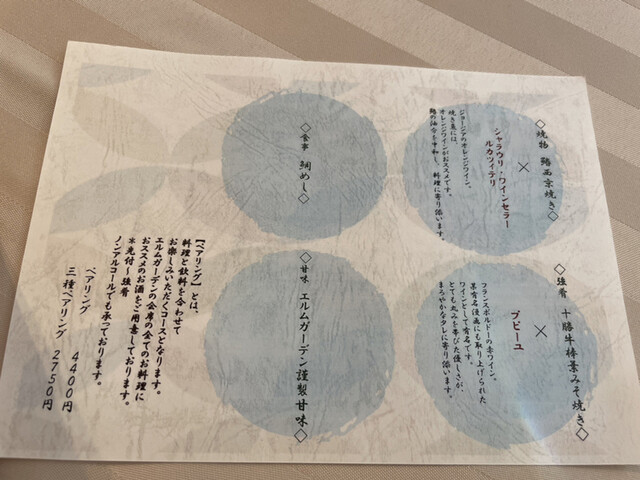 ◇焼物 鰆西京焼き◇
×
シャラウリ・ワインセラー
ルカツィテリ
ジョージアのオレンジワイン。
焼き魚には、
オレンジワインがおススメです。
鰆の油分を中和し、料理に寄り添います。
◇強肴 十勝牛朴葉みそ焼き◇
×
プピーユ
フランスボルドーの赤ワイン。
某有名漫画にも取り上げられた
ワインとして有名です。
とても丸みを帯びた優しさが、
まろやかなタレに寄り添います。
◇食事 鯛めし◇
◇甘味 エルムガーデン謹製甘味◇
【ペアリング】とは、
料理と飲料を合わせて
お楽しみいただくコースとなります。
エルムガーデンの会席の全てのお料理に
おススメのお酒をご用意しております。
※先付～強肴
ノンアルコールでも承っております。
ペアリング 4400円
三種ペアリング 2750円